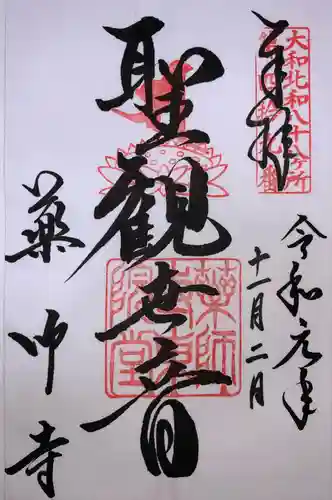 奉拝
大和北和八十八ヶ所
令和元年
十一月二日
聖観世音
薬師寺